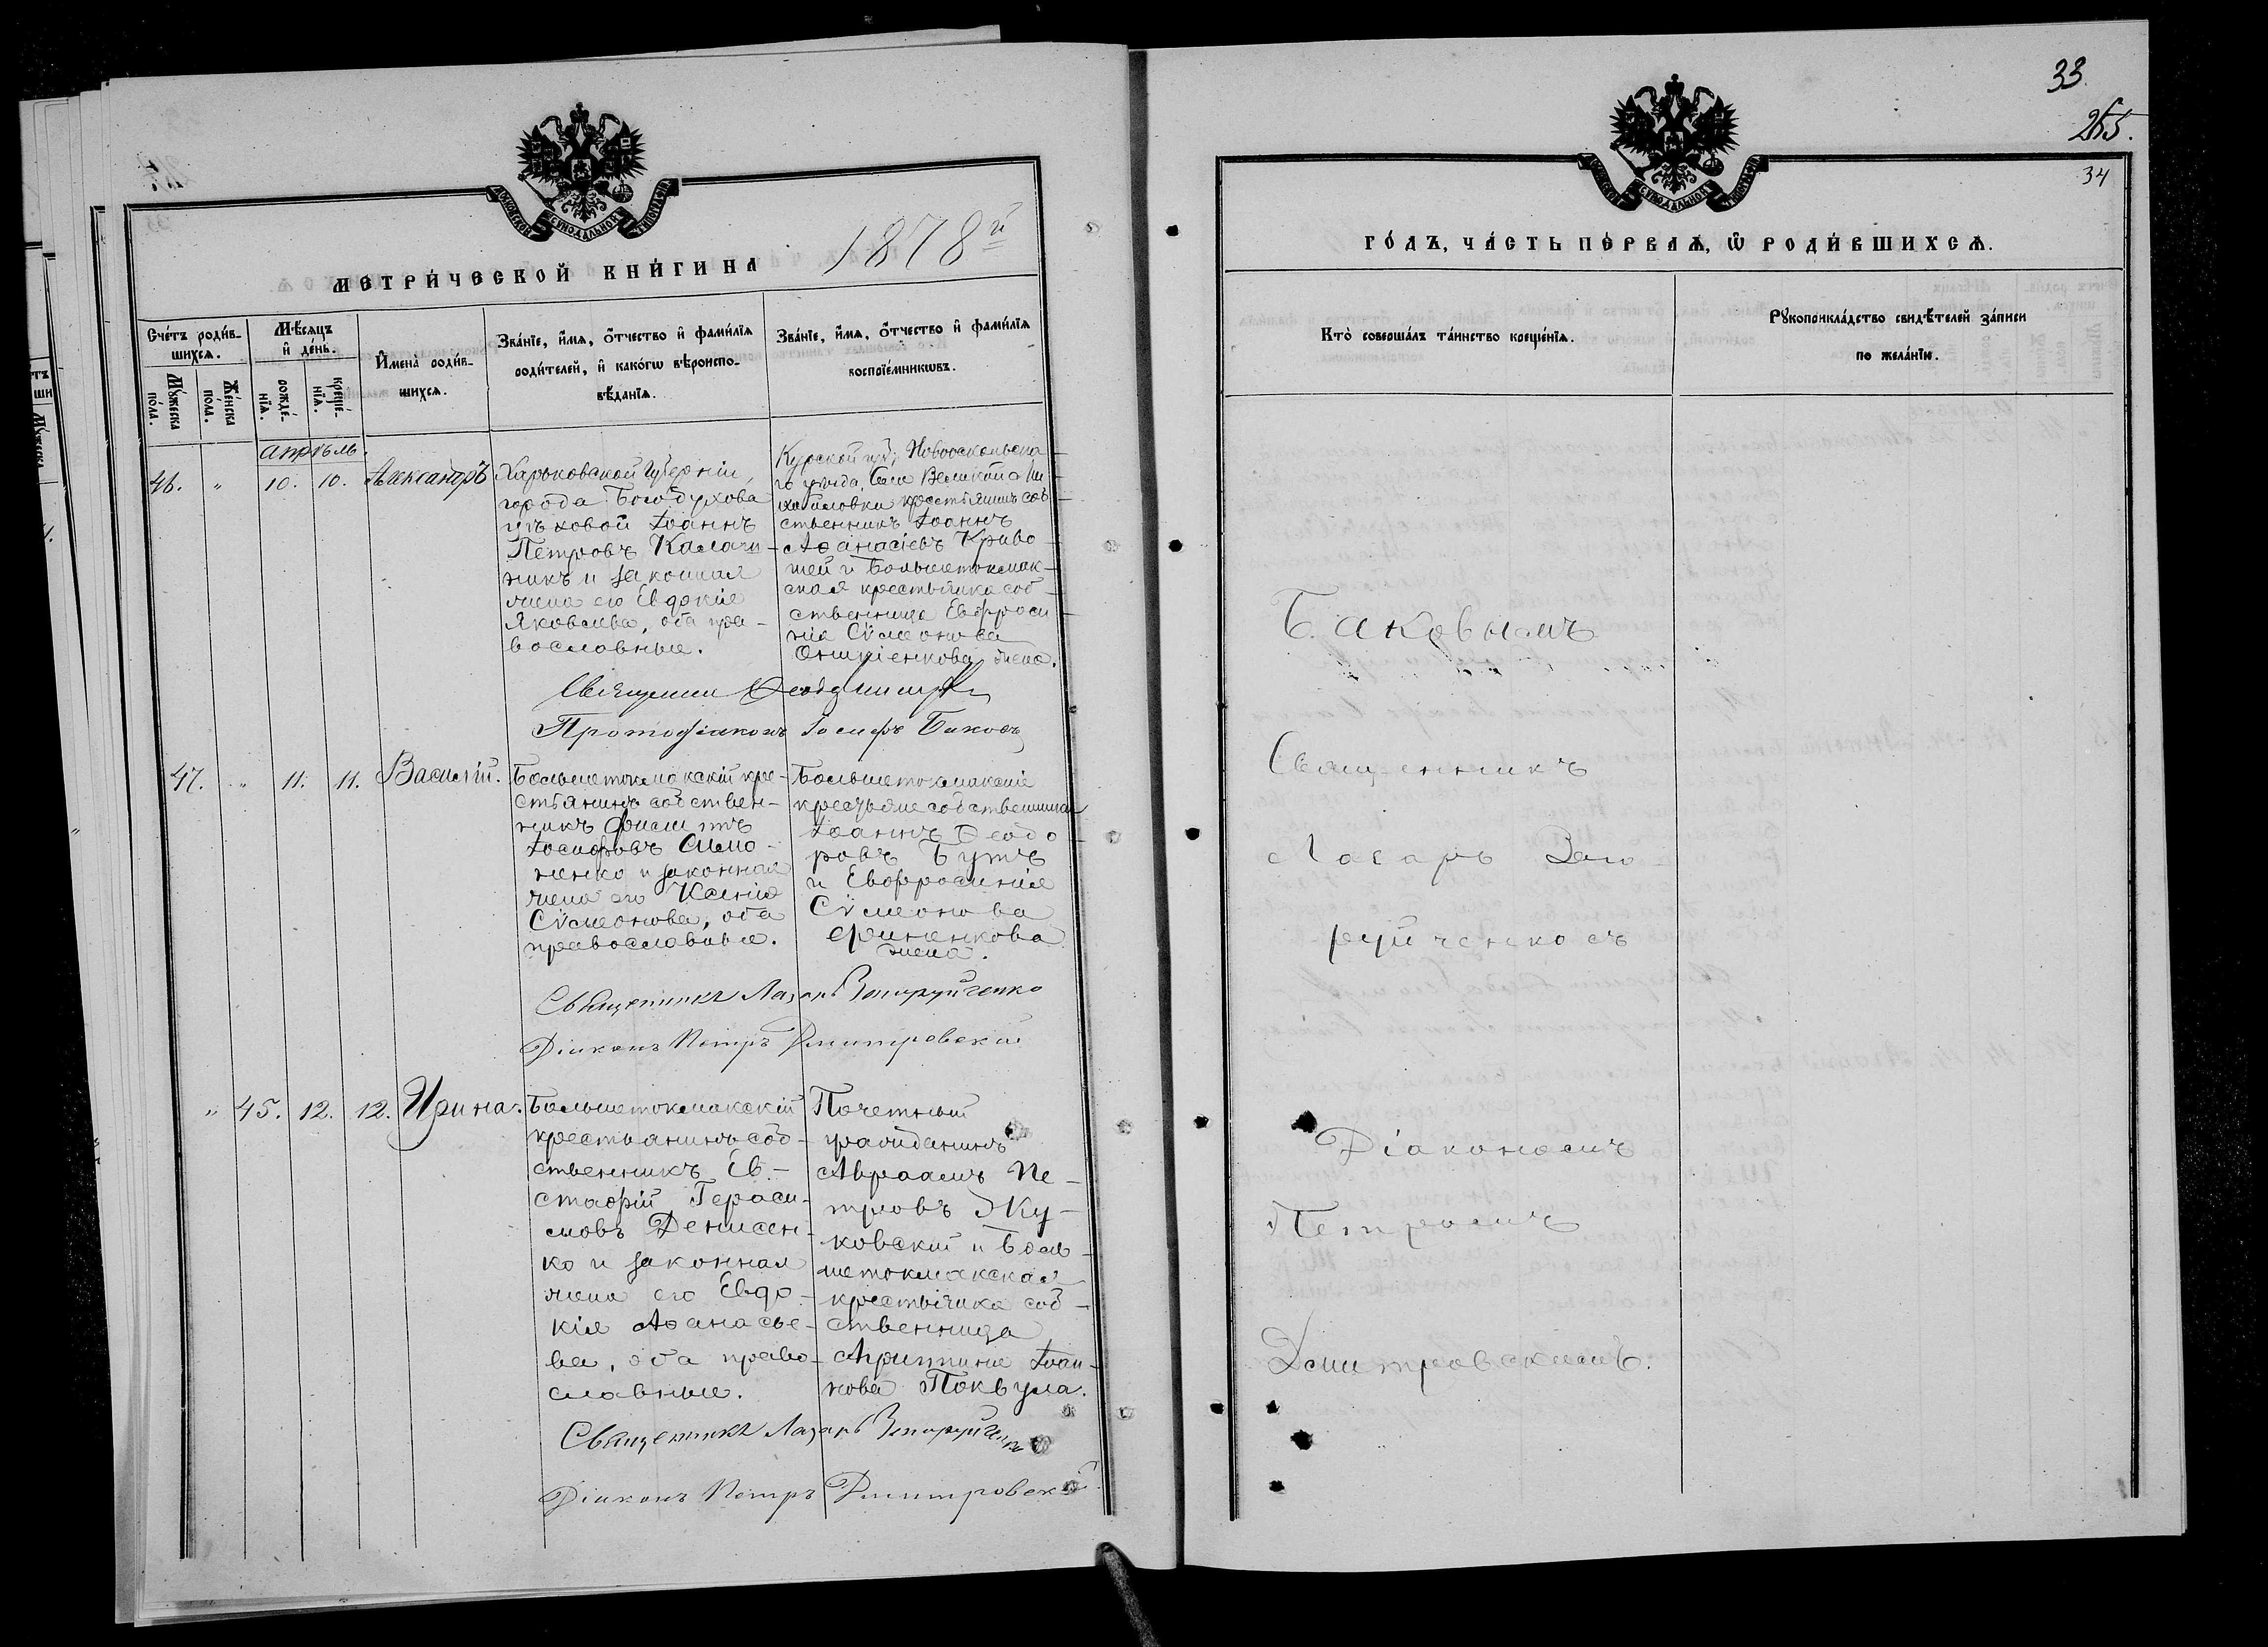 33.
34
1878й
МЕТРИ́ЧЕСКОЙ КНИ́ГИ НА
ГО́ДЪ, ЧА́СТЬ ПЕ́РВАѦ, Ѿ РОДИ́ВШИХСѦ.
Сче́тъ роди́в-
шихсѧ.
Мꙋ́жеска
по́ла.
Же́нска
по́ла.
Мѣ́сяцъ
и҆ де́нь.
рожде́-
нїѧ.
креще́-
нїѧ.
И҆мена̀ роди́в-
шихсѧ.
Зва́нїе, и҆́мѧ, ѻ҆́тчество и҆ фами́лїѧ
роди́телей, и҆ како́гѡ вѣроиспо-
вѣ́данїѧ.
Зва́нїе, и҆́мѧ, ѻ҆́тчество и҆ фами́лїѧ
воспрїе́мникѡвъ.
Кто̀ соверша́лъ та́инство креще́нїѧ.
Рꙋкоприкла́дство свидѣ́телей за́писи
по жела́нїю.
Апрѣль.
46. " 10. 10. Александръ
Харьковской Губерніи,
города Богодухова
цѣховой Іоаннъ
Петровъ Калачи-
никъ и законная
жена его Евдокія
Яковлева, оба пра-
вославные.
Курской губ; Новооскольска-
го уѣзда, села Великой Ми-
хайловки крестьянинъ соб-
ственникъ Іоаннъ
Аѳанасіевъ Криво-
шей и Большетокмак-
ская крестьянка соб-
ственница Евфроси-
нія Сѵмеонова
жена.
Протодіаконъ Іосифъ Баковъ
Баковымъ
47. " 11. 11. Василій.
Большетокмакскій кре-
стьянинъ собствен-
никъ
Іосифовъ Симо-
ненко и законная
жена его Ксенія
Сѵмеонова, оба
православные.
Большетокмакскіе
крестьяне собственники
Іоаннъ Ѳеодо-
ровъ Бутъ
и Евфросинія
Сѵмеонова
жена.
Священникъ Лазарь Загоруйченко
Діаконъ Петръ Дмитровскій
Священникъ
Лазарь Заго-
руйченкомъ
" 45. 12. 12. Ирина.
Большетокмакскій
крестьянинъ соб-
ственникъ Ев-
стафій Гераси-
мовъ Денисен-
ко и законная
жена его Евдо-
кія Аѳанасье-
ва, оба право-
славные.
Почетный
гражданинъ
Авраамъ Пе-
тровъ Жу-
ковскій и Боль-
шетокмакская
крестьянка соб-
ственница
Агриппина Іоан-
нова
Священникъ Лазарь Загоруйченко
Діаконъ Петръ Дмитровскій
Діакономъ
Петромъ
Дмитровскимъ.